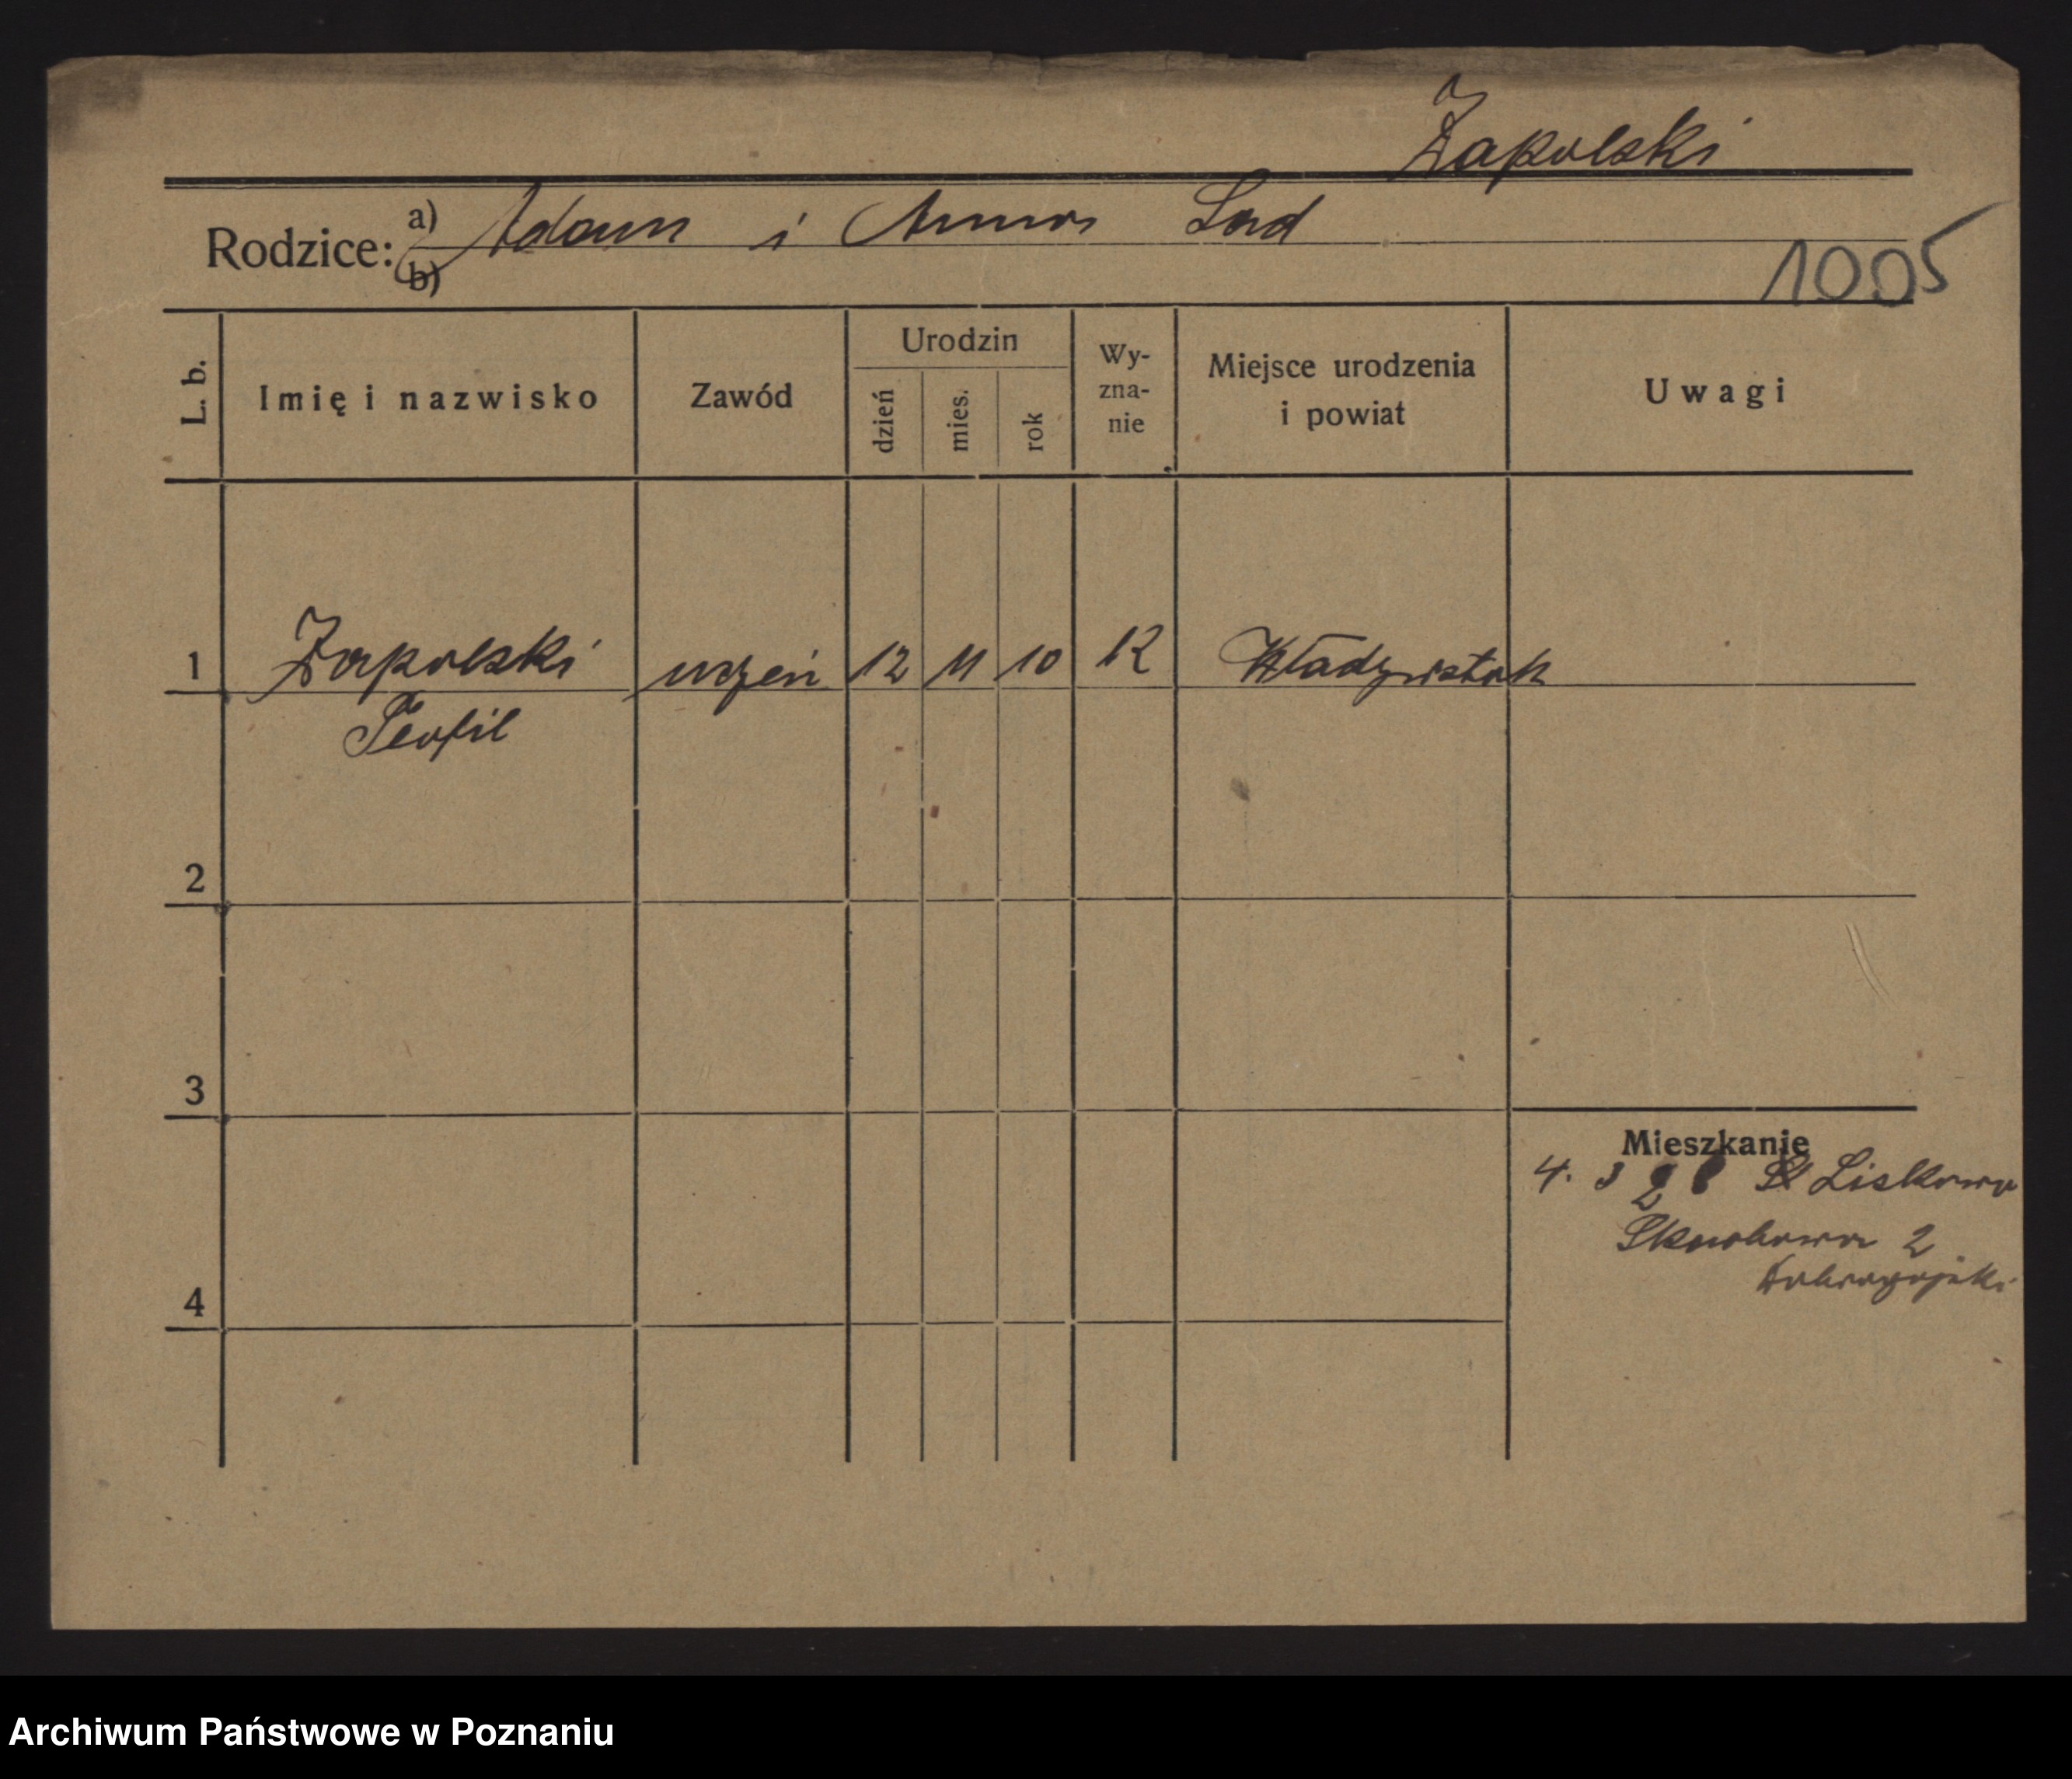 Zapolski
Rodzice: a) Adam i Anna Sad
b)
1005
L. b.
Imię i nazwisko
Zawód
Urodzin
dzień
mies.
rok
Wy-
zna-
nie
Miejsce urodzenia
i powiat
Uwagi
1 Zapolski uczeń 12 11 10 K Władywostok
Teofil
2
3
Mieszkanie
4. 3 2 Liskowo
2
4
Archiwum Państwowe w Poznaniu